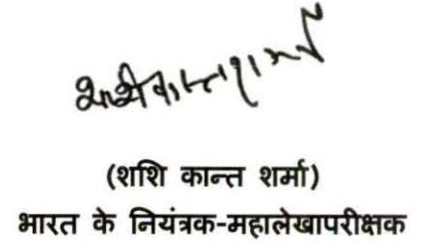 शशीकान्त शर्मा
(शशि कान्त शर्मा)
भारत के नियंत्रक-महालेखापरीक्षक